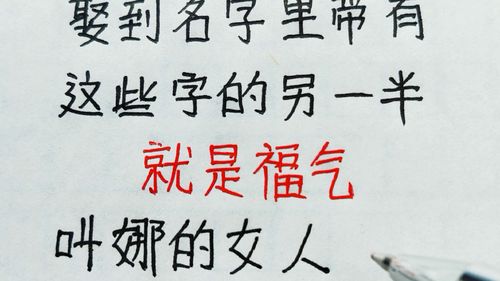 娶到名字里带有
这些字的另一半
就是福气
叫娜的女人